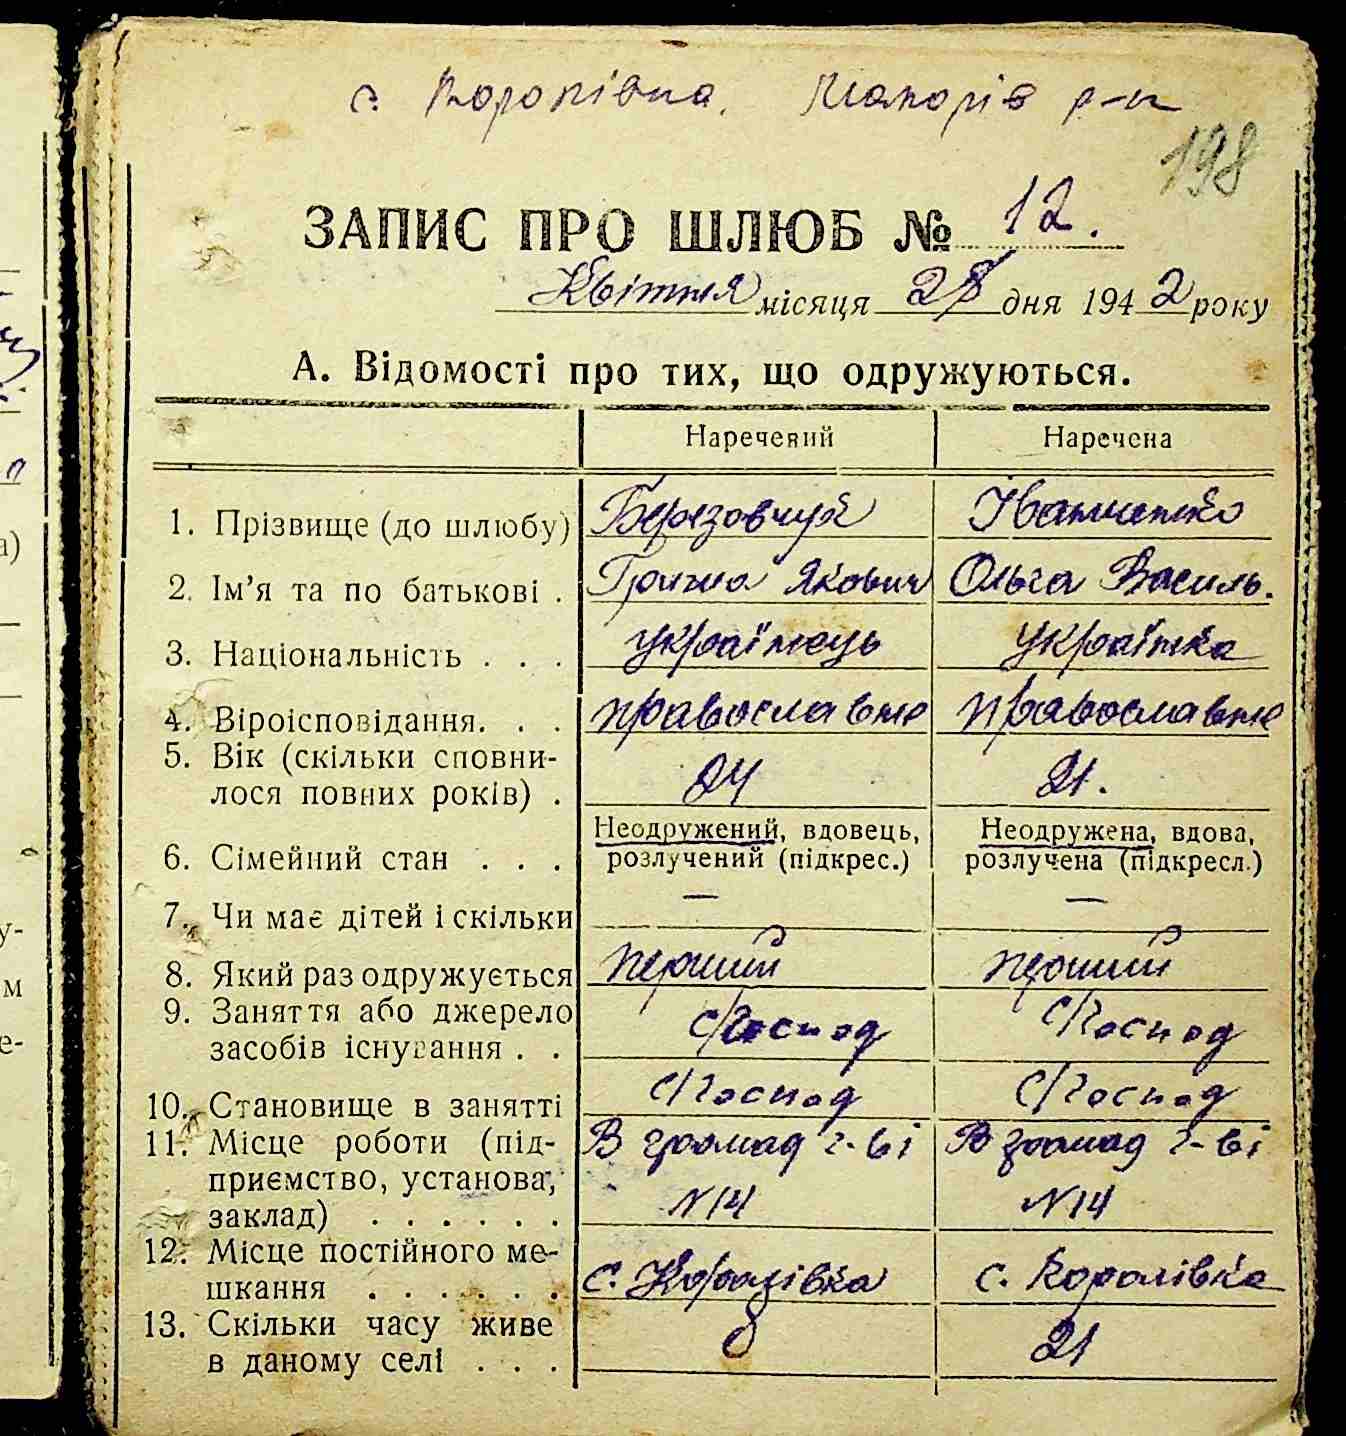 с. Королівка, Макорів р-н
198
ЗАПИС ПРО ШЛЮБ № 12.
Квітня місяця 28 дня 1942 року
А. Відомості про тих, що одружуються.
Наречений Наречена
1. Прізвище (до шлюбу) Березовчук Іванченко
2. Ім'я та по батькові . Грично Якович Ольга Василь.
3. Національність . . . українець українка
4. Віроісповідання. . . православне православне
5. Вік (скільки сповни-
лося повних років) . 24 21.
Неодружений, вдовець, Неодружена, вдова,
6. Сімейний стан . . . розлучений (підкрес.) розлучена (підкресл.)
7. Чи має дітей і скільки — —
8. Який раз одружується перший перший
9. Заняття або джерело
засобів існування . . с/господ с/господ
10. Становище в занятті с/господ с/господ
11. Місце роботи (під- В громад г-ві В громад г-ві
приємство, установа,
заклад) . . . . . . №14 №14
12. Місце постійного ме-
шкання . . . . . . с. Королівка с. Королівка
13. Скільки часу живе
в даному селі . . . 8 21